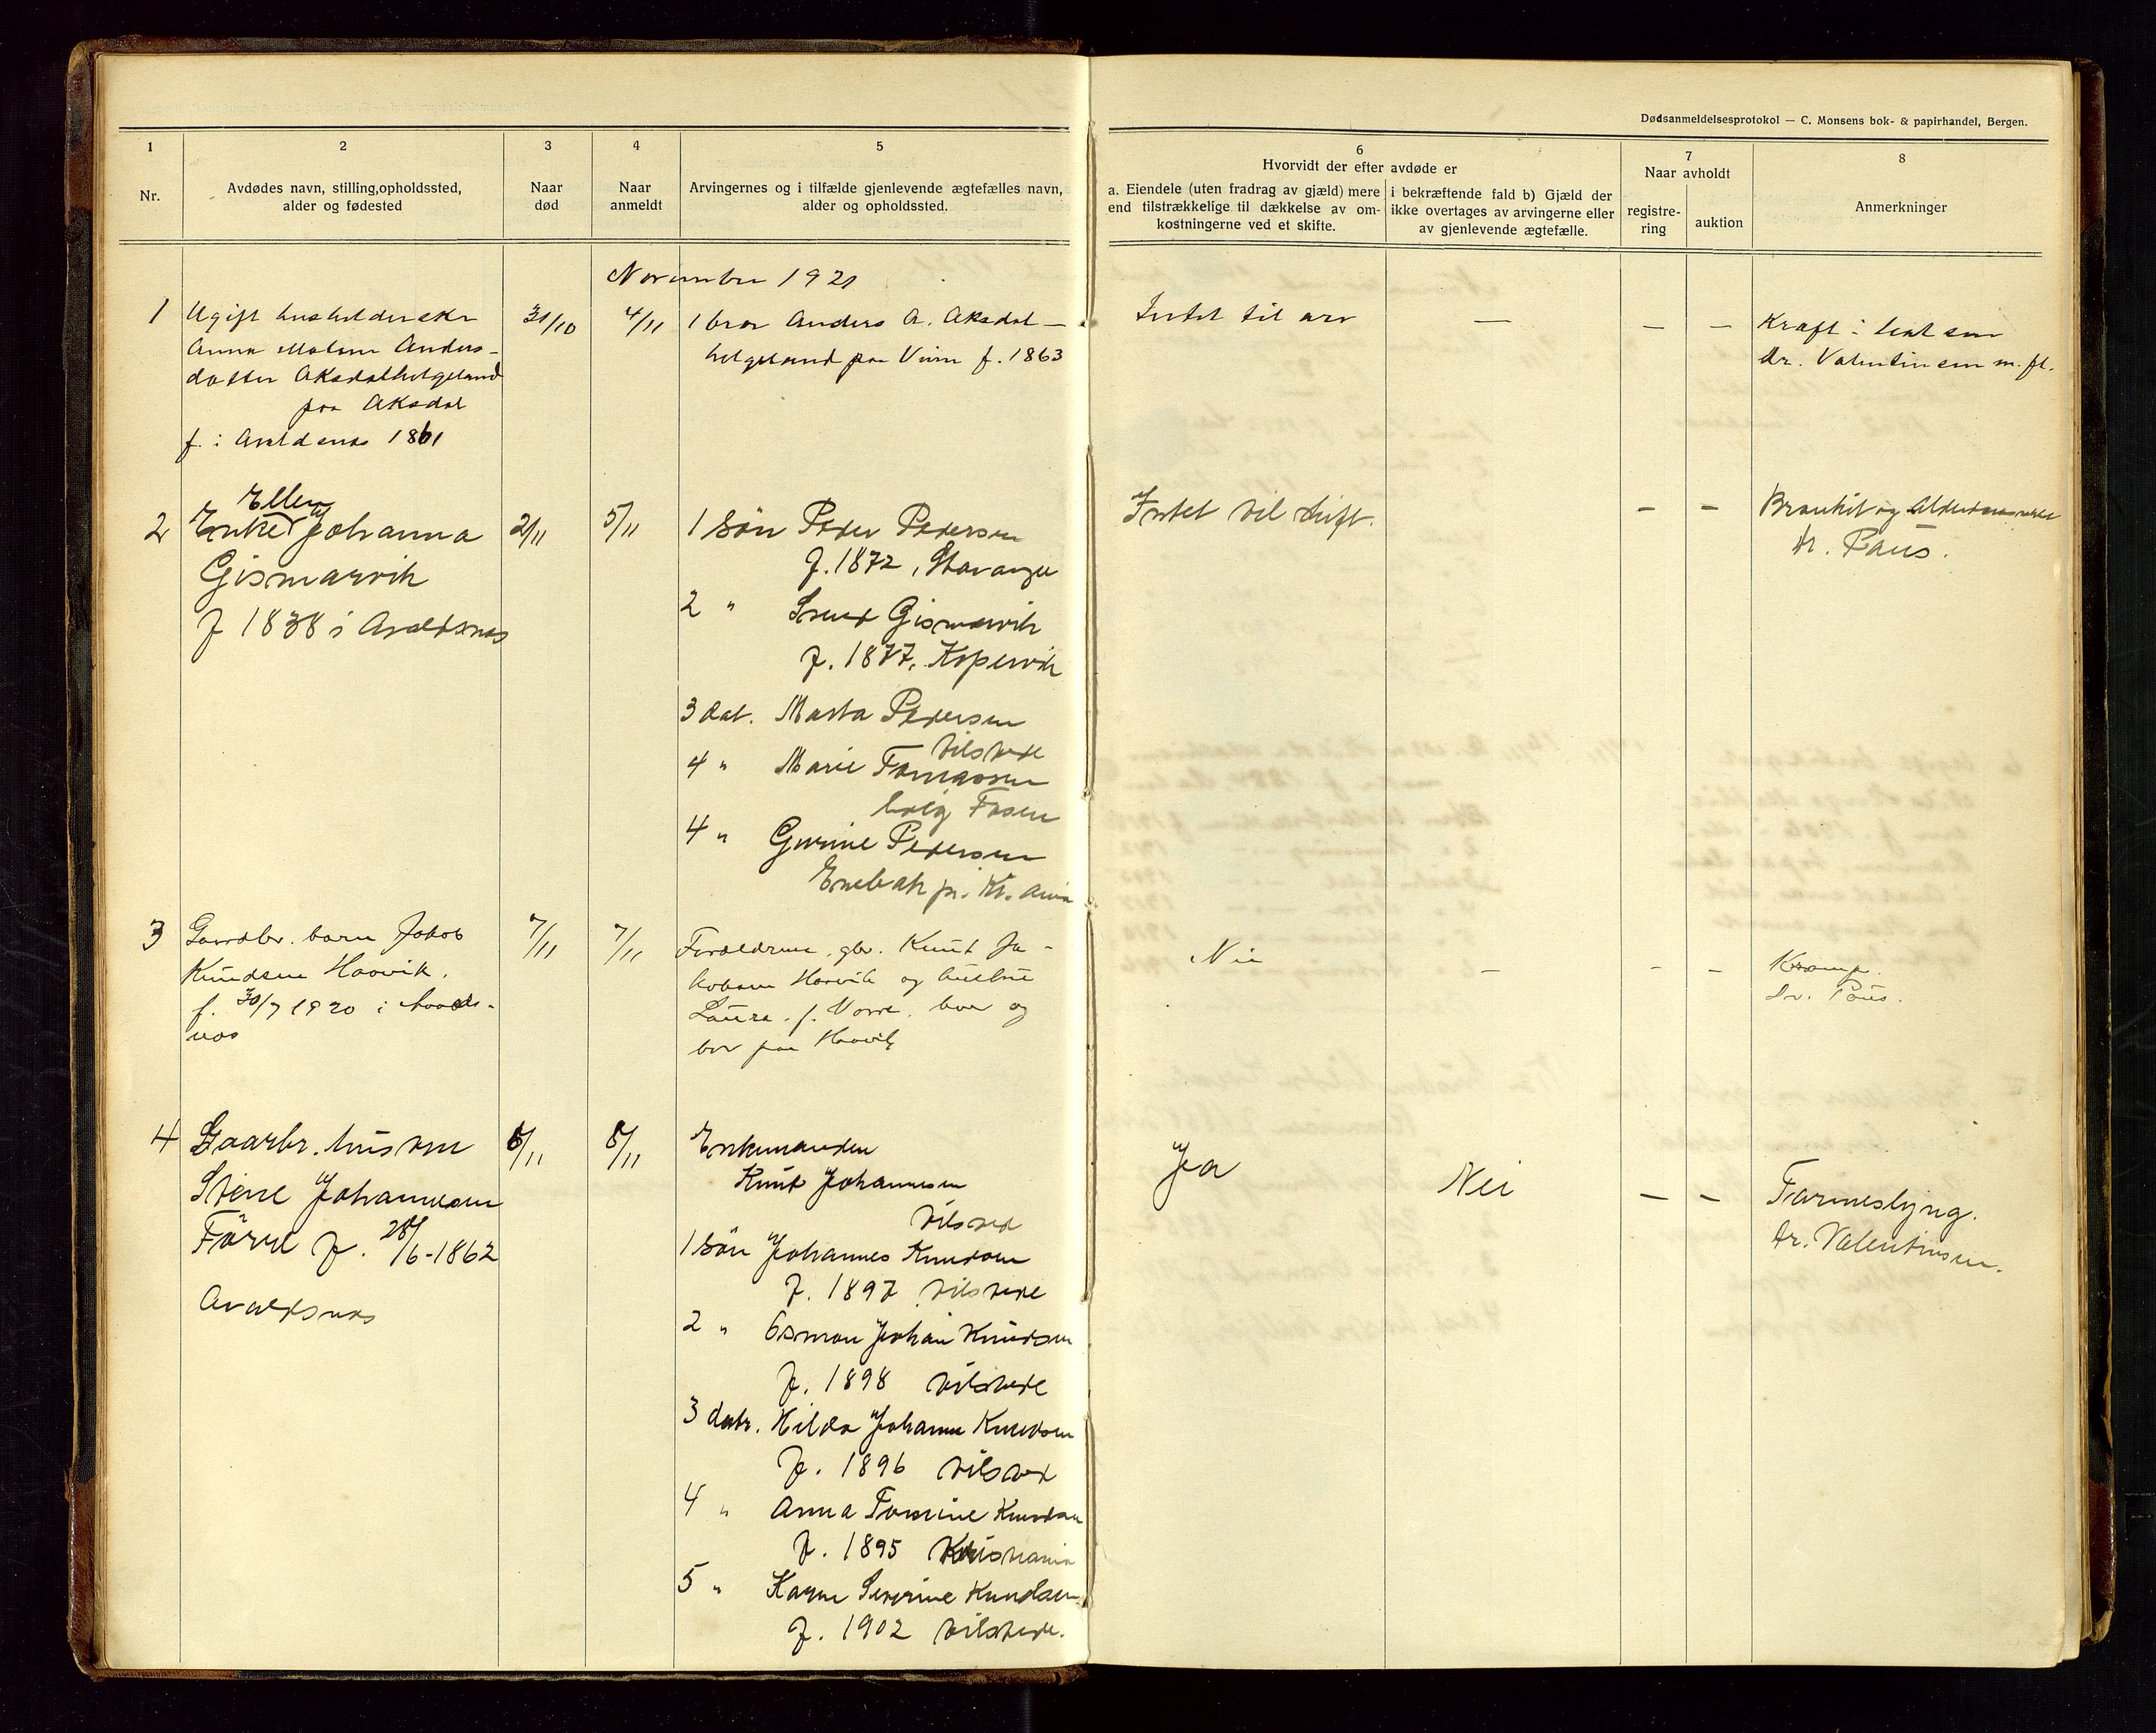 Dødsanmeldelsesprotokol — C. Monsens bok- & papirhandel, Bergen.
1
Nr.
2
Avdødes navn, stilling,opholdssted,
alder og fødested
3
Naar
død
4
Naar
anmeldt
5
Arvingernes og i tilfælde gjenlevende ægtefælles navn,
alder og opholdssted.
6
Hvorvidt der efter avdøde er
a. Eiendele (uten fradrag av gjæld) mere
end tilstrækkelige til dækkelse av om-
kostningerne ved et skifte.
i bekræftende fald b) Gjæld der
ikke overtages av arvingerne eller
av gjenlevende ægtefælle.
7
Naar avholdt
registre-
ring
auktion
8
Anmerkninger
November 1921
1
Ugift husholderske
Anna Malene Anders-
datter Aksdalhelgeland
paa Aksdal
f. i Avaldsnes 1861
31/10
4/11
1 bror Anders A. Aksdal-
helgeland paa f. 1863
Intet til arv
—
—
—
Kræft i
dr. Valentinsen m. fl.
2
Ellen
Enke Johanna
Gismarvik
f 1838 i Avaldsnes
2/11
5/11
1 Sön Peder Pedersen
f. 1872, Stavanger
2 " Svend Gismarvik
f. 1877, Kopervik
3 dat. Marta Pedersen
tilstede
4 " Marie Tomassen
bolig Fosen
4 " Gurine Pedersen
Enebak pr. Kr.ania
Intet til skift.
-
-
Bronkit og
dr. Paus.
3
Gaardbr. barn Jakob
Knudsen Haavik.
f. 30/7 1920 i Avalds-
nes
7/11
7/11
Forældrene, gbr. Knut Ja-
kobsen Haavik og hustru
Laura f. Vorre, boer og
bor paa Haavik
Nei
-
-
-
Kramp.
Dr. Paus.
4
Gaarbr. hustru
Stine Johannesen
Förre f. 28/6-1862
Avaldsnes
6/11
8/11
Enkemanden
Knut Johannesen
tilsted
1 Sön Johannes Knudsen
f. 1897 tilstede
2 " Osmon Johan Knudsen
f. 1898 tilstede
3 datr. Hilda Johanne Knudsen
f. 1896 tilsted
4 " Anna Tomine Knudsen
f. 1895 Kristiania
5 " Karen Severine Knudsen
f. 1902 tilstede.
Ja
Nei
—
-
Tarmeslyng.
dr. Valentinsen.